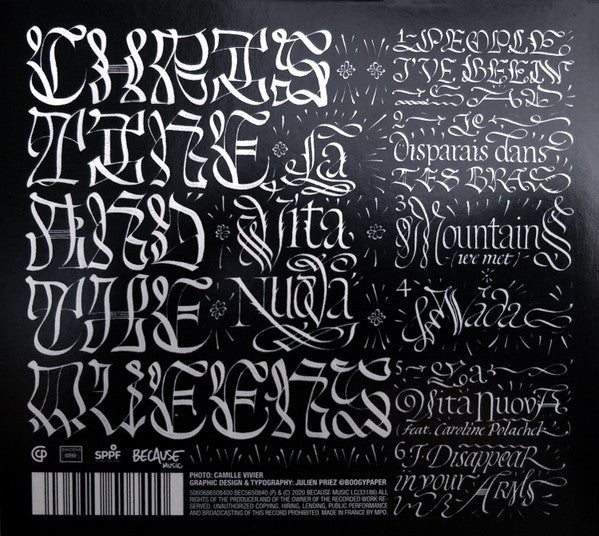 CHRIS
TINE
AND
THE
QUEENS
La
Vita
Nuova
1-PEOPLE
I'VE BEEN
SAD
2- Je
Disparais dans
TES BRAS
3 Mountains
(we met)
4 Nada
5- La
Vita Nuova
Feat. Caroline Polachek
6 I Disappear
in your
ARMS
CP
SACEM
SPPF
BECAUSE
MUSIC
PHOTO: CAMILLE VIVIER
GRAPHIC DESIGN & TYPOGRAPHY: JULIEN PRIEZ @BOOGYPAPER
5060686508400 BEC5650840 (P) & (C) 2020 BECAUSE MUSIC LC(33186) ALL
RIGHTS OF THE PRODUCER AND OF THE OWNER OF THE RECORDED WORK RE-
SERVED. UNAUTHORIZED COPYING, HIRING, LENDING, PUBLIC PERFORMANCE
AND BROADCASTING OF THIS RECORD PROHIBITED. MADE IN FRANCE BY MPO.